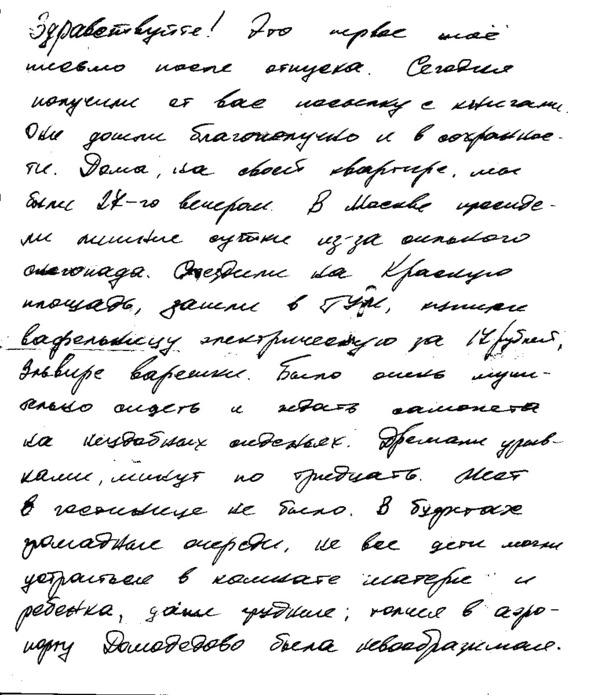 Здравствуйте! Это первое моё
письмо после отпуска. Сегодня
получили от вас посылку с книгами.
Они дошли благополучно и в сохраннос-
ти. Дома, на своей квартире, мы
были 24-го вечером. В Москве просиде-
ли лишние сутки из-за сильного
снегопада. Съездили на Красную
площадь, зашли в ГУМ, купили
вафельницу электрическую за 14 рублей,
Эльвире варежки. Было очень мучи-
тельно сидеть и ждать самолета
на неудобных сиденьях. Дремали урыв-
ками, минут по тридцать. Мест
в гостинице не было. В буфетах
громадные очереди, не все дети могли
устроиться в комнате матери и
ребенка, даже грудные; толчея в аэро-
порту Домодедово была невообразимая.